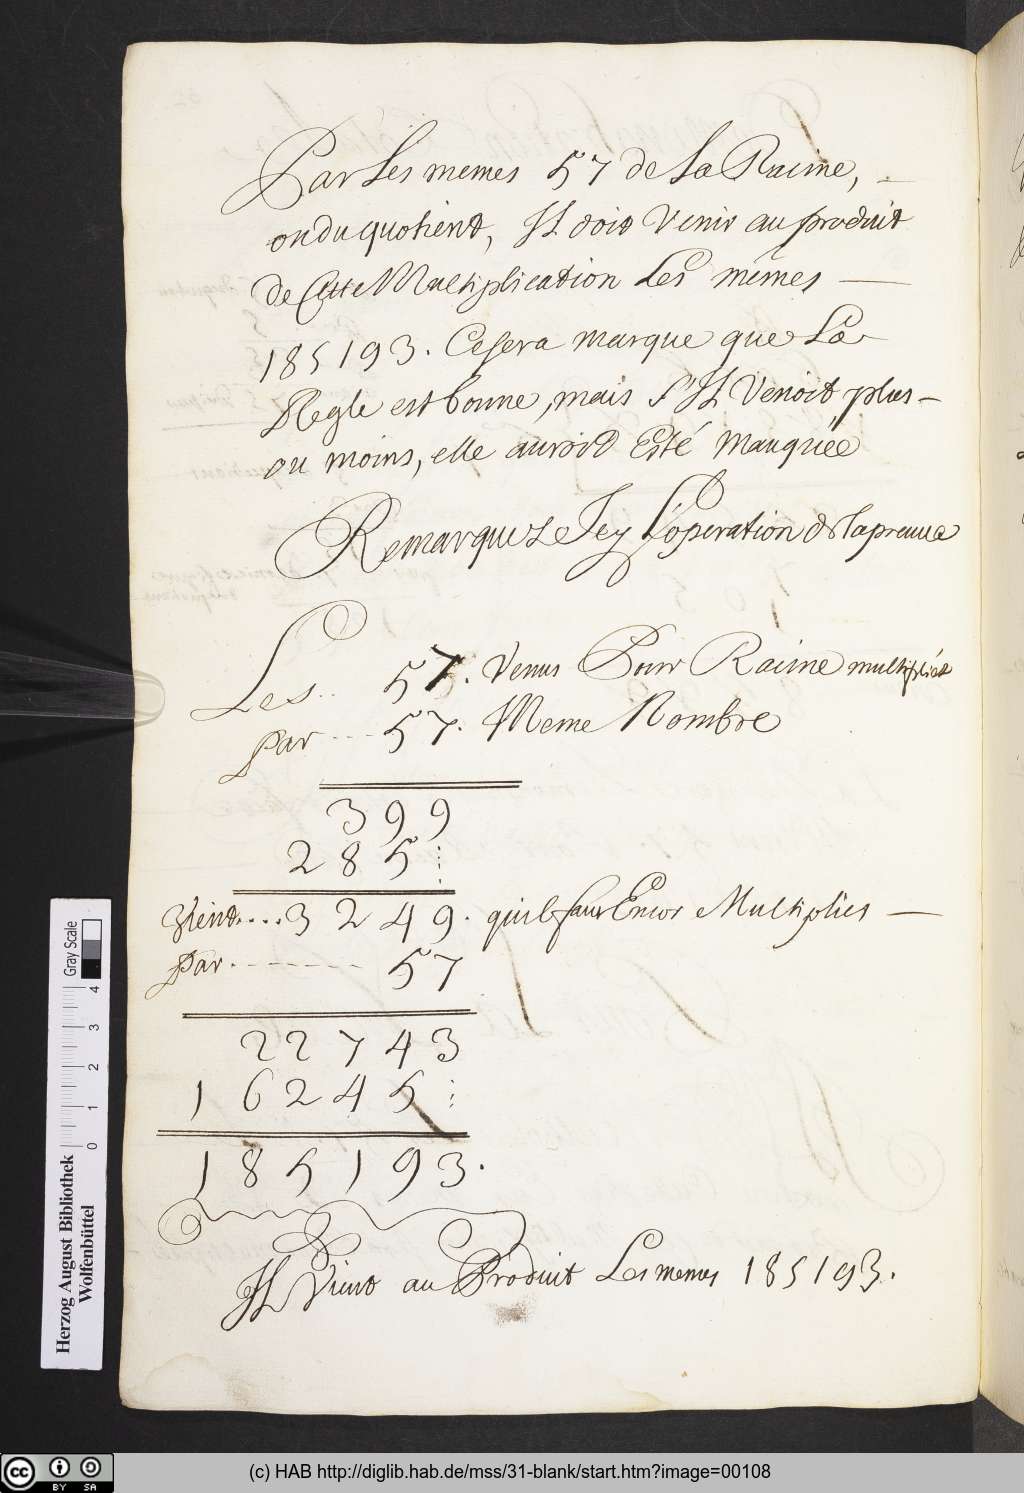 Par Les memes 57 de La Racine,
ou du quotient, Il doit Venir au produit
de Cette Multiplication Les mêmes
185193. Ce sera marque que La
Regle est bonne, mais s'Il Venoit plus
ou moins, elle auroit Esté Manquée
Remarquez Icy L'operation de la preuve
Les .. 57. Venus Pour Racine multipliés
Par --- 57. Meme Nombre
399
285
Vient....3249. qu'il faut Encor Multiplier
Par.------- 57
22743
16245
185193.
Il Vient au Produit Les memes 185193.
Herzog August Bibliothek
Wolfenbüttel
Gray Scale
0 1 2 3 4
cc BY SA
(c) HAB http://diglib.hab.de/mss/31-blank/start.htm?image=00108